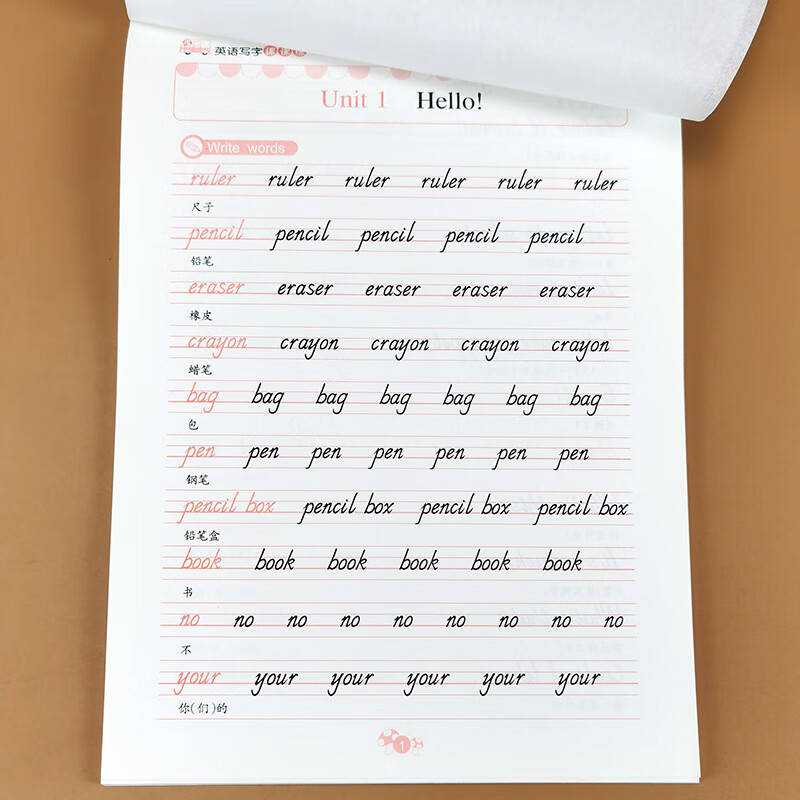 英语写字课课练
Unit 1 Hello!
Write words
ruler ruler ruler ruler ruler ruler
尺子
pencil pencil pencil pencil pencil
铅笔
eraser eraser eraser eraser eraser
橡皮
crayon crayon crayon crayon crayon
蜡笔
bag bag bag bag bag bag bag
包
pen pen pen pen pen pen pen
钢笔
pencil box pencil box pencil box pencil box
铅笔盒
book book book book book book
书
no no no no no no no no no
不
your your your your your your
你(们)的
1